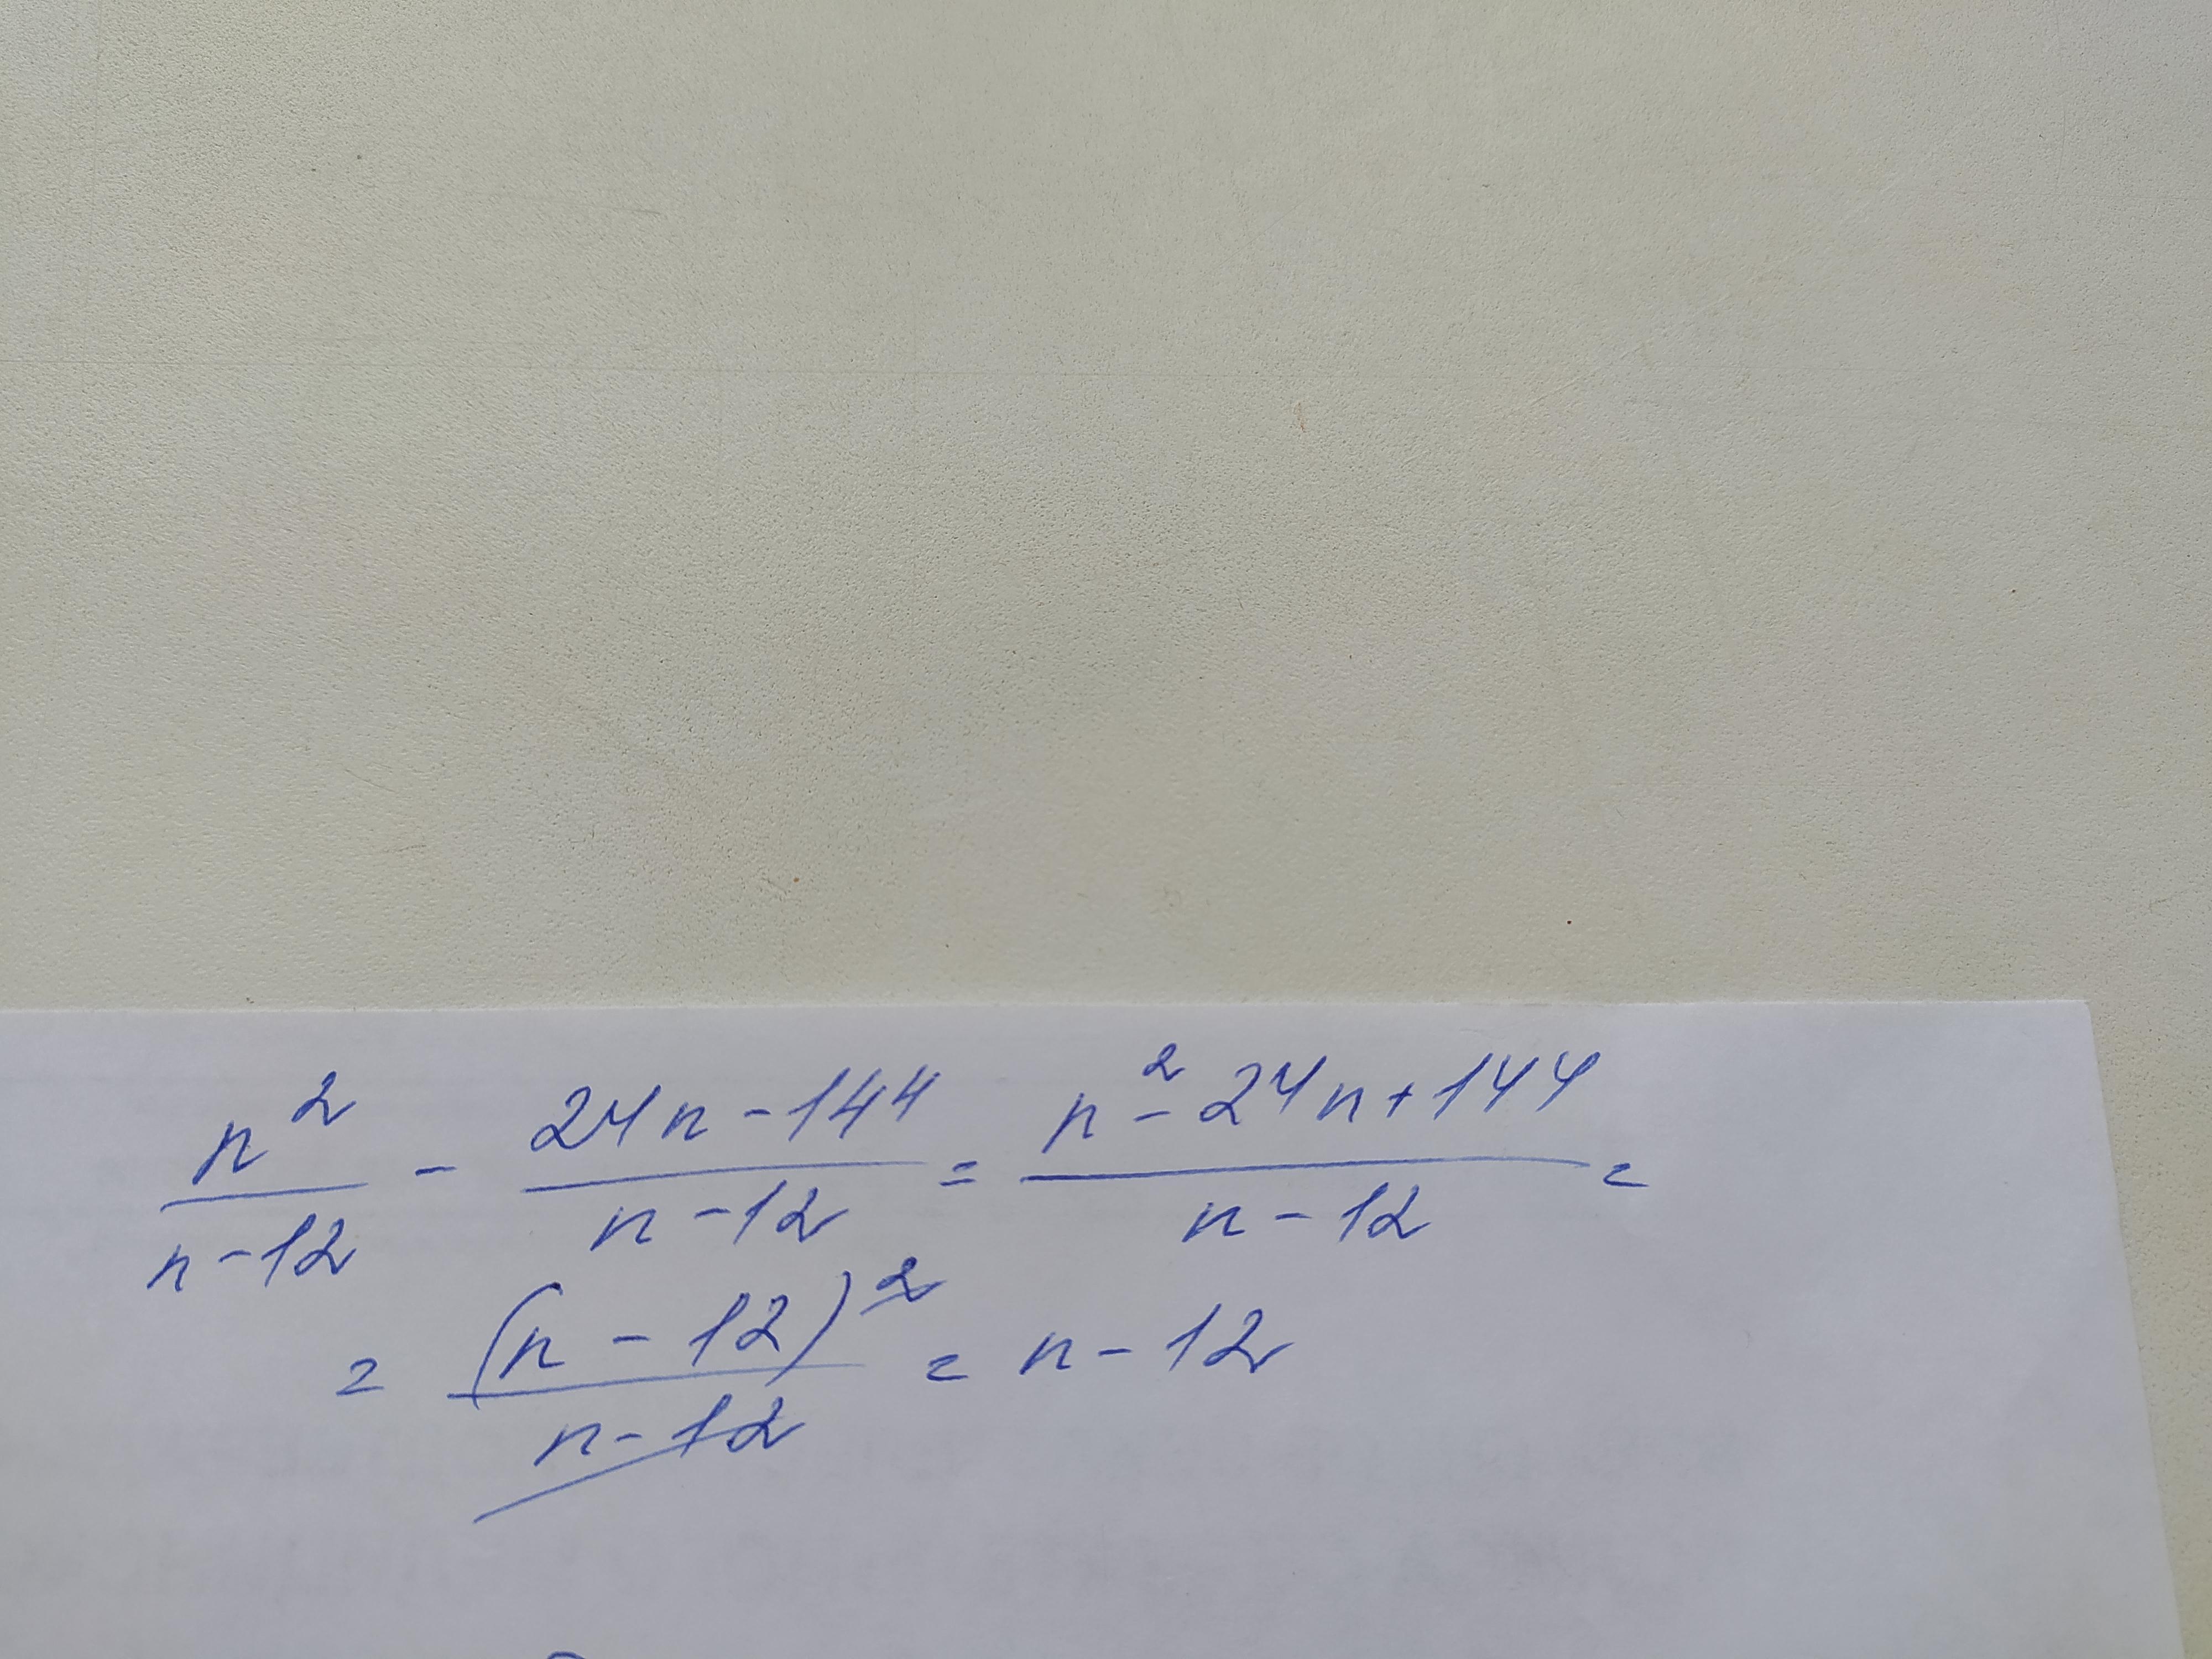 n²/(n-12) - (24n-144)/(n-12) = (n²-24n+144)/(n-12) =
= (n-12)²/(n-12) = n-12